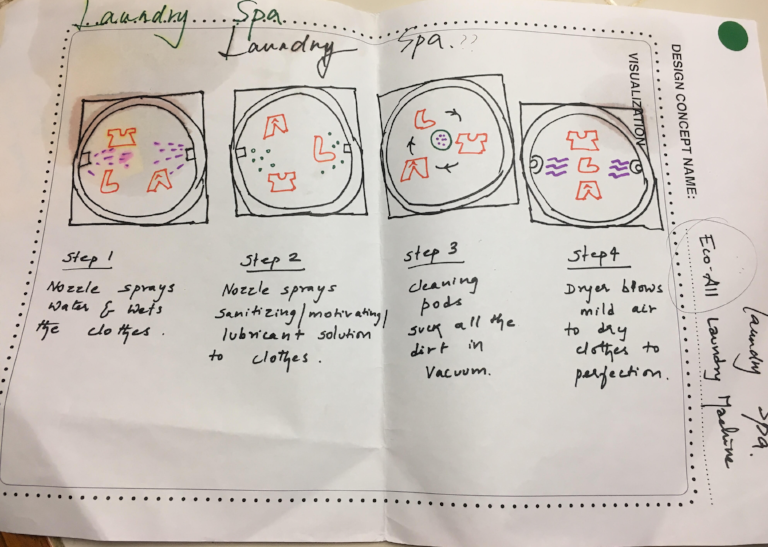 Laundry Spa.
Laundry Spa.??
DESIGN CONCEPT NAME:
VISUALIZATION
Eco-All Laundry Machine
Laundry Spa.
Step 1
Nozzle sprays
water & wets
the clothes.
Step 2
Nozzle sprays
sanitizing/motivating/
lubricant solution
to clothes.
Step 3
cleaning
pods
suck all the
dirt in
vacuum.
Step 4
Dryer blows
mild air
to dry
clothes to
perfection.